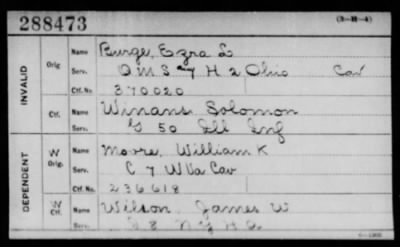 288473
(3-M-4)
INVALID
Orig
Name Burge, Ezra L
Serv. Q M S 7 H 2 Ohio Cav
Ctf. No. 370020
Ctf. Name Winans, Solomon
Serv. G 50 Ill Inf
DEPENDENT
W
Orig.
Name Moore, William K
Serv. C 7 W Va Cav
Ctf. No. 236618
W
Ctf.
Name Wilson, James W
8 N Y H A